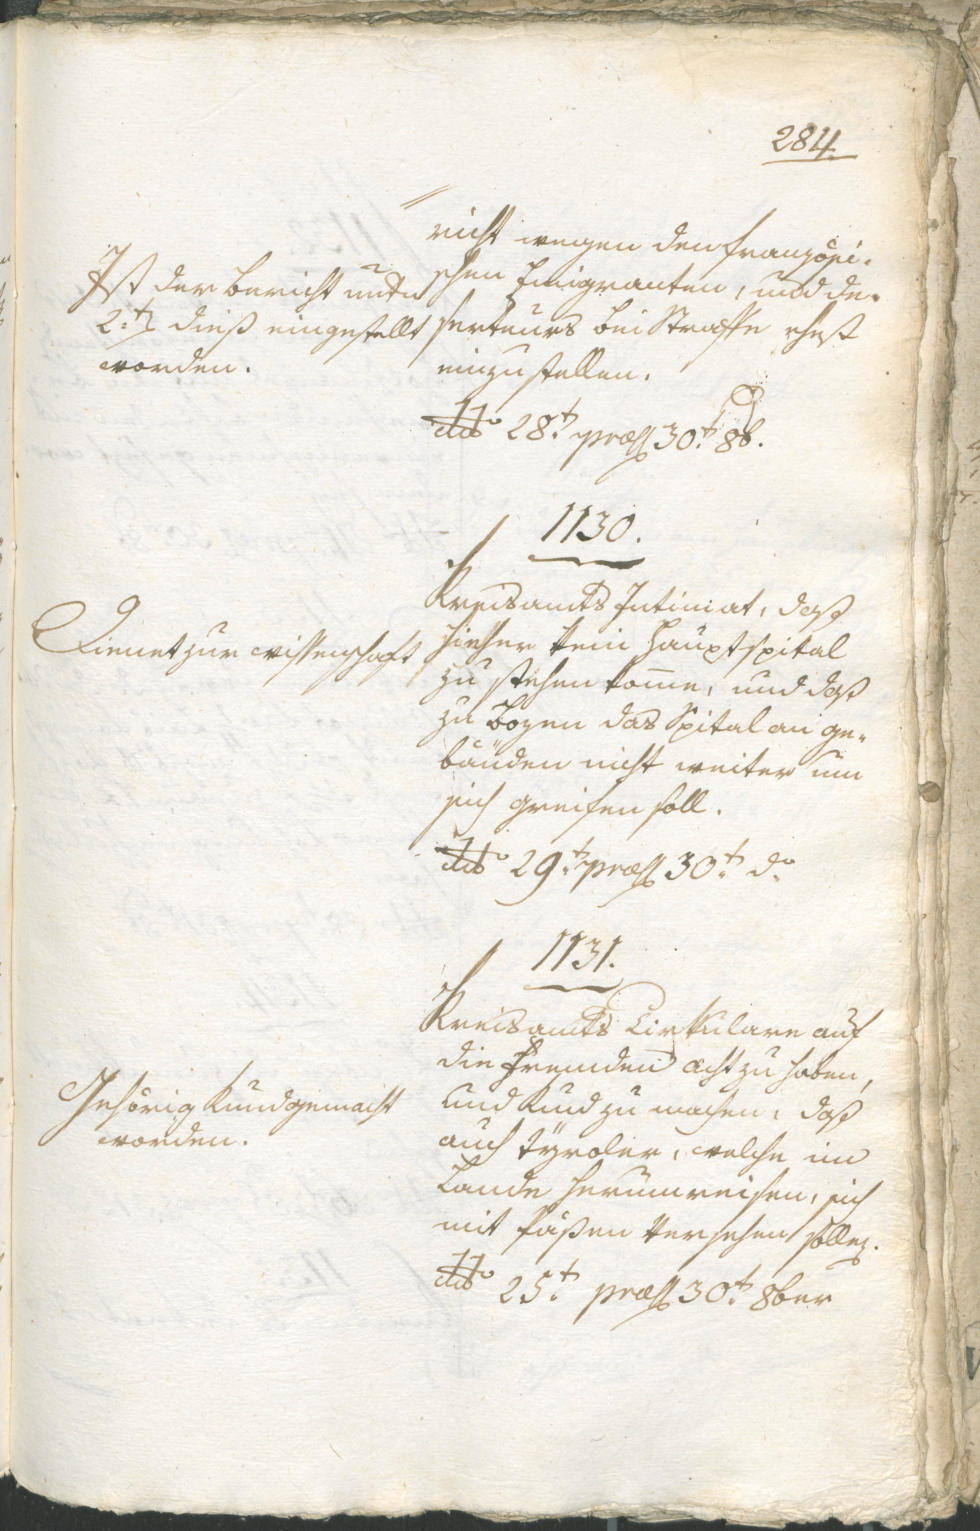 284.
richt wegen den französi-
schen Emigranten, und de-
serteurs bei Straffe ehest
einzustellen.
Ist der Bericht untern
2.t dieß eingestellt
worden.
dto 28.t præs 30.t 8b.
1130.
Kreisamts Intimat, daß
hieher kein Hauptspital
zu stehen kom̅e, und daß
zu Bozen das Spital an ge-
bäuden nicht weiter um
sich greifen soll.
Dienet zur wissenschaft
dto 29.t præs 30.t do
1131.
Kreisamts Cirkulare auf
die Fremden acht zu haben,
und kund zu machen, daß
auch Tÿroler, welche im
Lande herumreisen, sich
mit Päßen versehen sollen.
Gehörig kundgemacht
worden.
dto 25.t præs 30.t 8ber